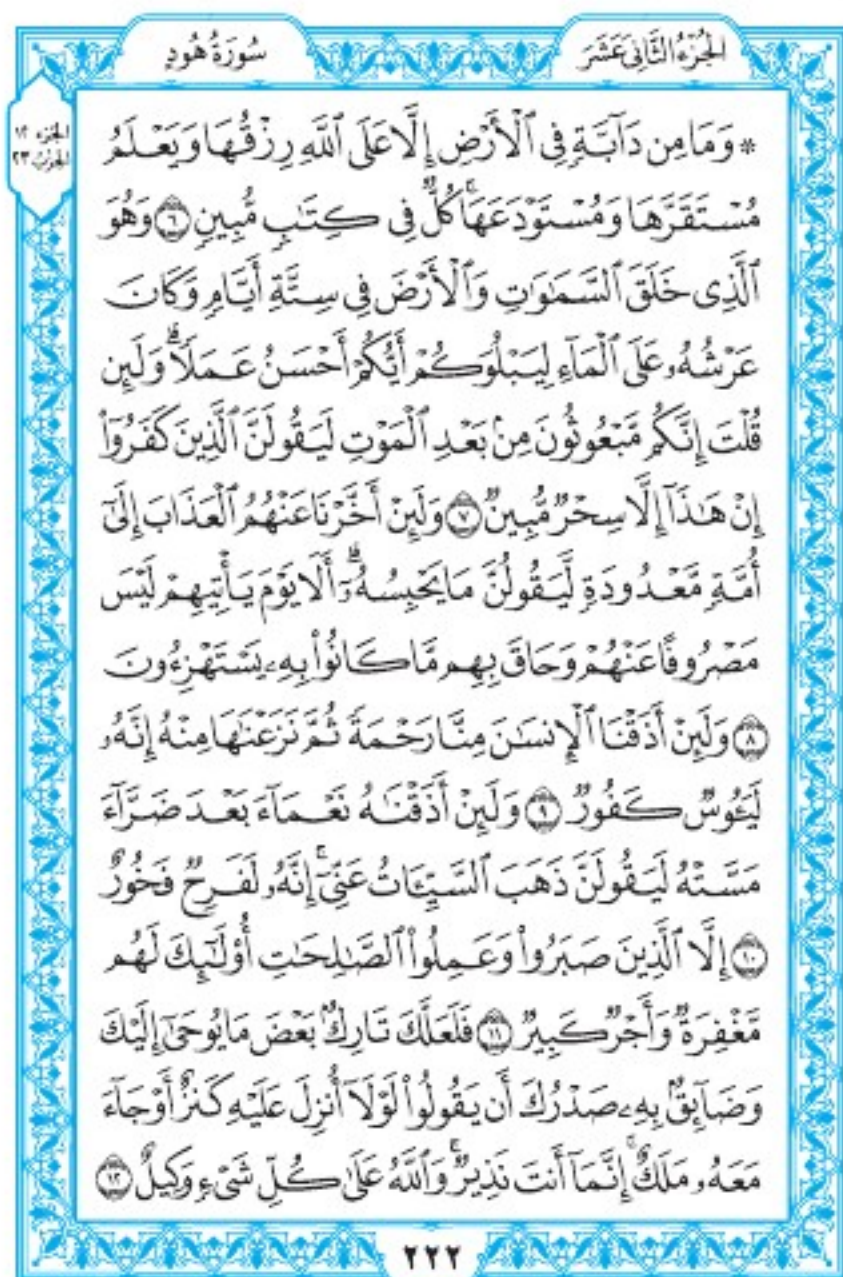 الجُزْءُ الثَّانِي عَشَرَ
سُورَةُ هُودٍ
الجزء ١٢
الحزب ٢٣
* وَمَا مِن دَآبَّةٖ فِي ٱلۡأَرۡضِ إِلَّا عَلَى ٱللَّهِ رِزۡقُهَا وَيَعۡلَمُ
مُسۡتَقَرَّهَا وَمُسۡتَوۡدَعَهَاۚ كُلّٞ فِي كِتَٰبٖ مُّبِينٖ ٦ وَهُوَ
ٱلَّذِي خَلَقَ ٱلسَّمَٰوَٰتِ وَٱلۡأَرۡضَ فِي سِتَّةِ أَيَّامٖ وَكَانَ
عَرۡشُهُۥ عَلَى ٱلۡمَآءِ لِيَبۡلُوَكُمۡ أَيُّكُمۡ أَحۡسَنُ عَمَلٗاۗ وَلَئِن
قُلۡتَ إِنَّكُم مَّبۡعُوثُونَ مِنۢ بَعۡدِ ٱلۡمَوۡتِ لَيَقُولَنَّ ٱلَّذِينَ كَفَرُوٓاْ
إِنۡ هَٰذَآ إِلَّا سِحۡرٞ مُّبِينٞ ٧ وَلَئِنۡ أَخَّرۡنَا عَنۡهُمُ ٱلۡعَذَابَ إِلَىٰٓ
أُمَّةٖ مَّعۡدُودَةٖ لَّيَقُولُنَّ مَا يَحۡبِسُهُۥٓۗ أَلَا يَوۡمَ يَأۡتِيهِمۡ لَيۡسَ
مَصۡرُوفًا عَنۡهُمۡ وَحَاقَ بِهِم مَّا كَانُواْ بِهِۦ يَسۡتَهۡزِءُونَ
٨ وَلَئِنۡ أَذَقۡنَا ٱلۡإِنسَٰنَ مِنَّا رَحۡمَةٗ ثُمَّ نَزَعۡنَٰهَا مِنۡهُ إِنَّهُۥ
لَيَـُٔوسٞ كَفُورٞ ٩ وَلَئِنۡ أَذَقۡنَٰهُ نَعۡمَآءَ بَعۡدَ ضَرَّآءَ
مَسَّتۡهُ لَيَقُولَنَّ ذَهَبَ ٱلسَّيِّـَٔاتُ عَنِّيٓۚ إِنَّهُۥ لَفَرِحٞ فَخُورٌ
١٠ إِلَّا ٱلَّذِينَ صَبَرُواْ وَعَمِلُواْ ٱلصَّٰلِحَٰتِ أُوْلَٰٓئِكَ لَهُم
مَّغۡفِرَةٞ وَأَجۡرٞ كَبِيرٞ ١١ فَلَعَلَّكَ تَارِكُۢ بَعۡضَ مَا يُوحَىٰٓ إِلَيۡكَ
وَضَآئِقُۢ بِهِۦ صَدۡرُكَ أَن يَقُولُواْ لَوۡلَآ أُنزِلَ عَلَيۡهِ كَنزٌ أَوۡ جَآءَ
مَعَهُۥ مَلَكٌۚ إِنَّمَآ أَنتَ نَذِيرٞۚ وَٱللَّهُ عَلَىٰ كُلِّ شَيۡءٖ وَكِيلٌ ١٢
٢٢٢